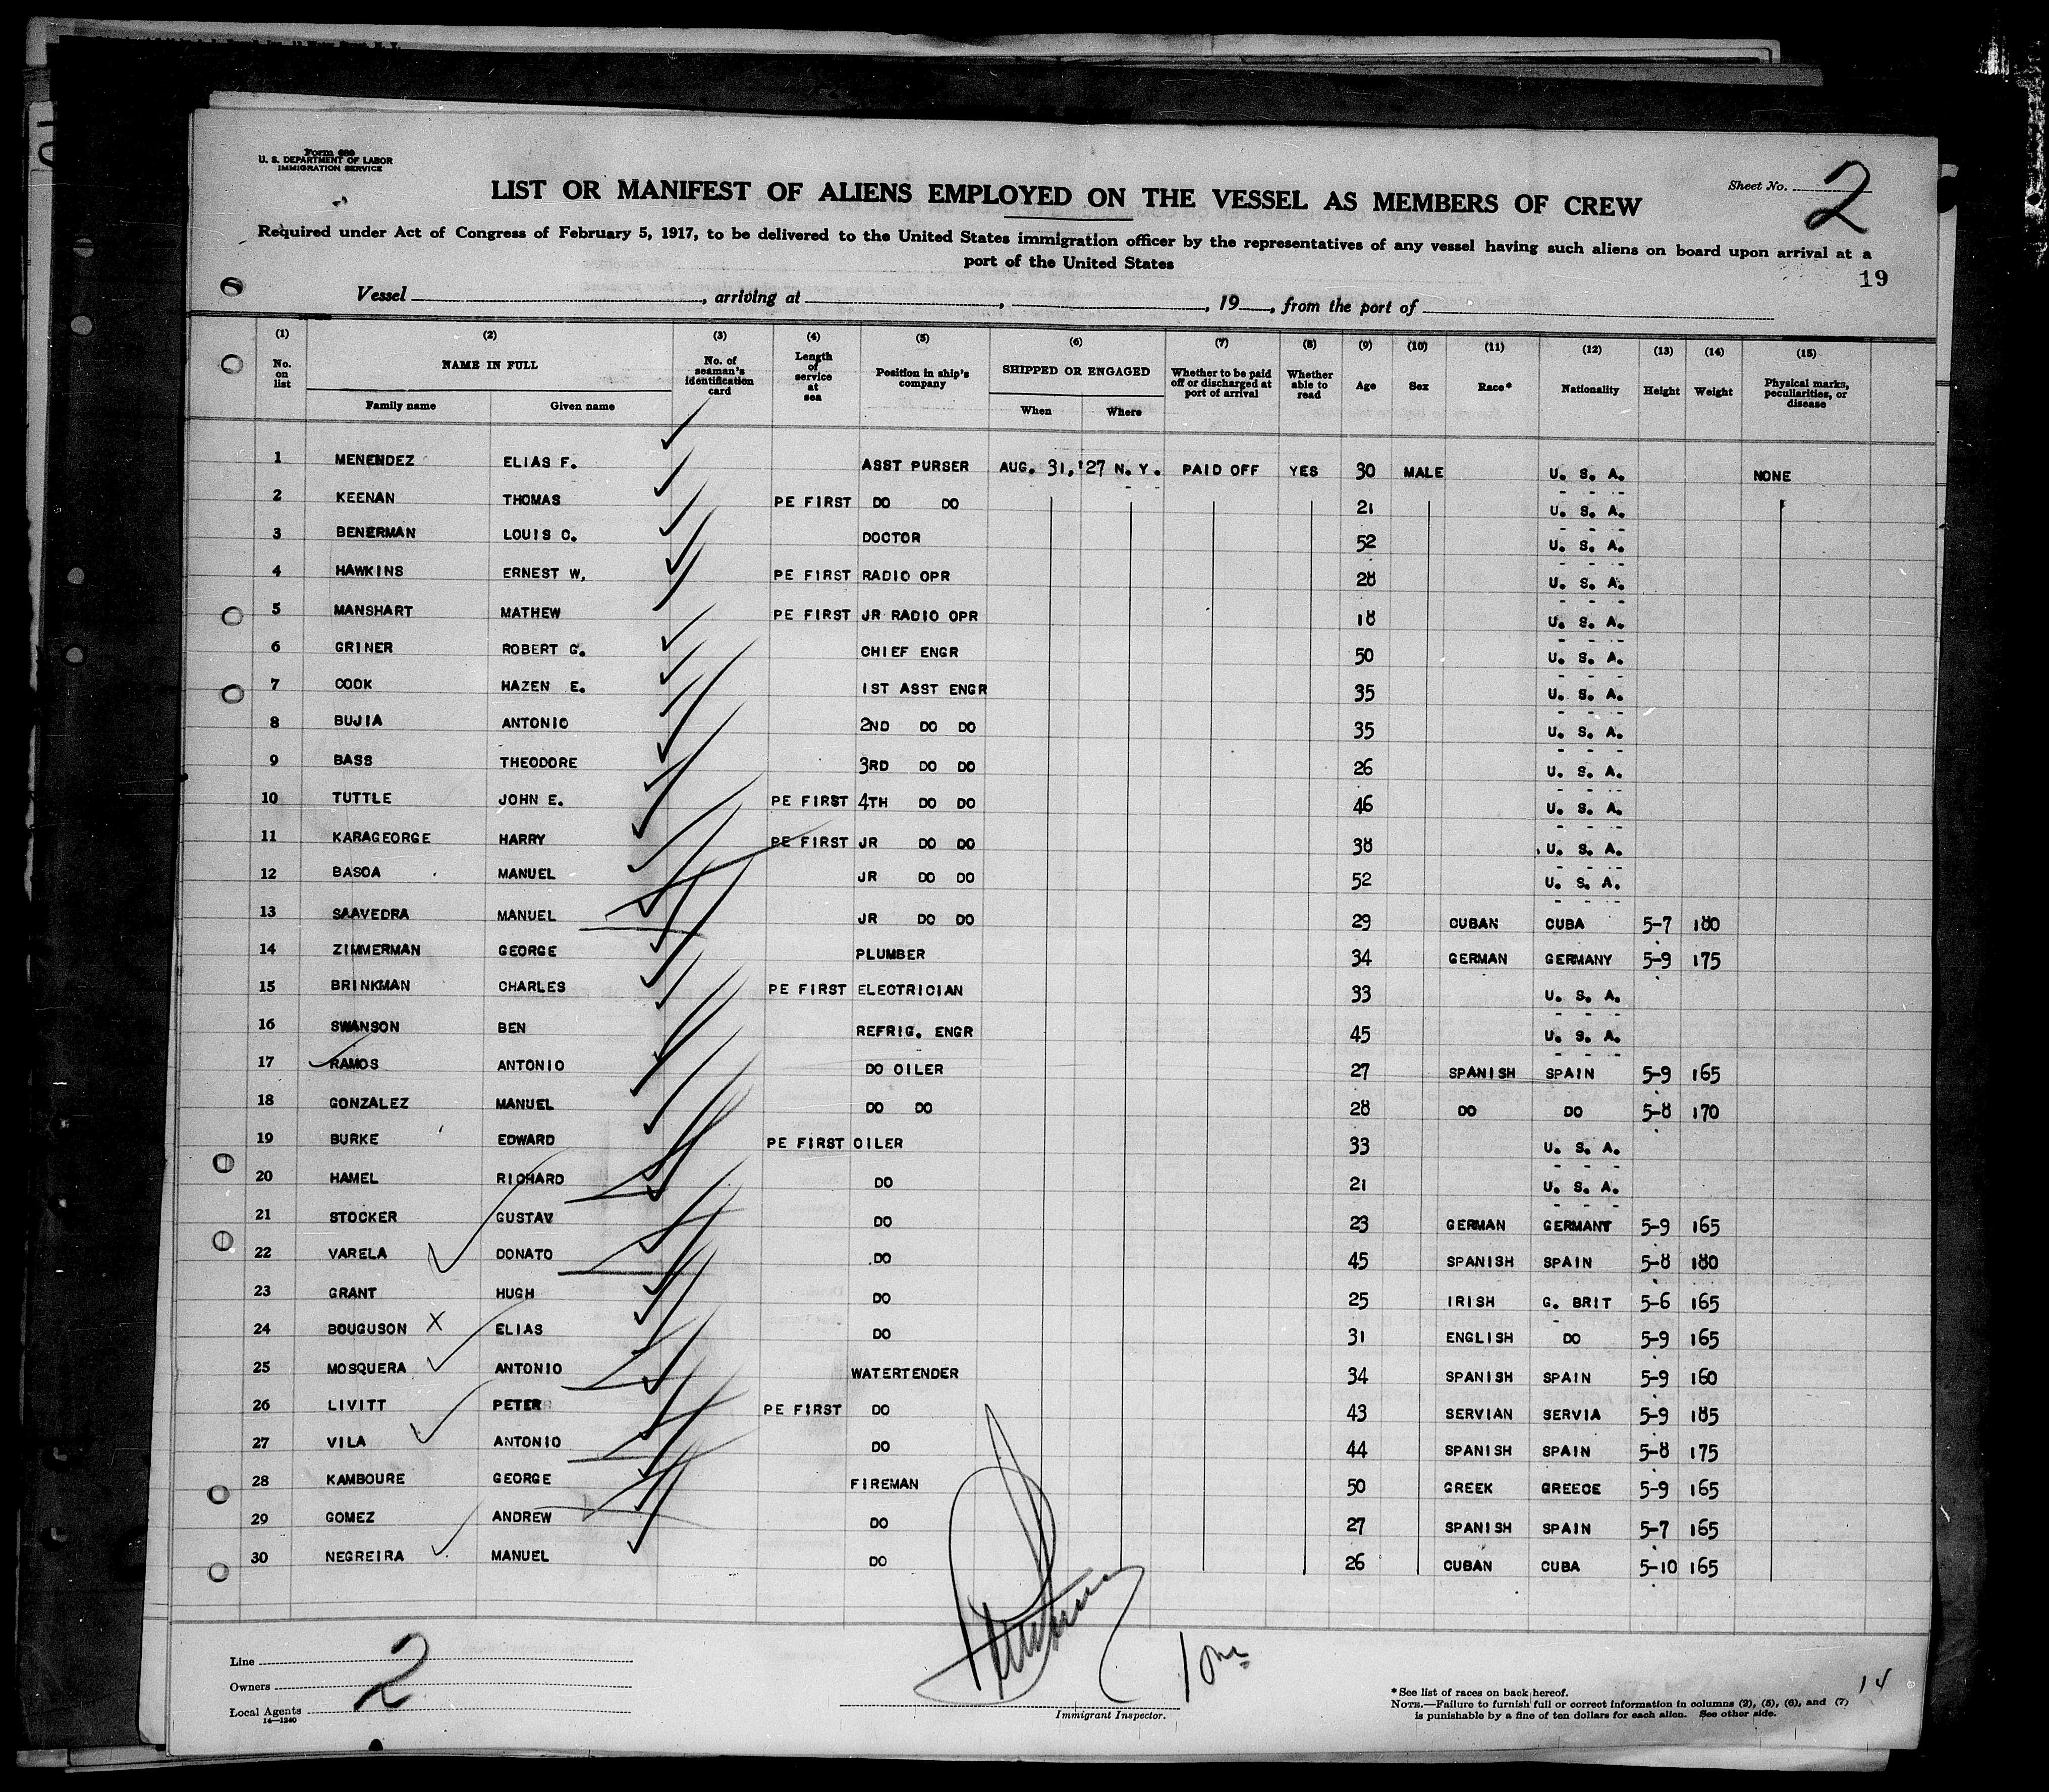 Form 680
U. S. DEPARTMENT OF LABOR
IMMIGRATION SERVICE
Sheet No. 2
LIST OR MANIFEST OF ALIENS EMPLOYED ON THE VESSEL AS MEMBERS OF CREW
Required under Act of Congress of February 5, 1917, to be delivered to the United States immigration officer by the representatives of any vessel having such aliens on board upon arrival at a
port of the United States
19
Vessel , arriving at , , 19 , from the port of
(1) (2) (3) (4) (5) (6) (7) (8) (9) (10) (11) (12) (13) (14) (15)
No. on list NAME IN FULL No. of seaman's identification card Length of service at sea Position in ship's company SHIPPED OR ENGAGED Whether to be paid off or discharged at port of arrival Whether able to read Age Sex Race* Nationality Height Weight Physical marks, peculiarities, or disease
Family name Given name When Where
1 MENENDEZ ELIAS F. ASST PURSER AUG. 31, '27 N. Y. PAID OFF YES 30 MALE U. S. A. NONE
2 KEENAN THOMAS PE FIRST DO DO 21 U. S. A.
3 BENERMAN LOUIS C. DOCTOR 52 U. S. A.
4 HAWKINS ERNEST W, PE FIRST RADIO OPR 28 U. S. A.
5 MANSHART MATHEW PE FIRST JR RADIO OPR 18 U. S. A.
6 GRINER ROBERT G. CHIEF ENGR 50 U. S. A.
7 COOK HAZEN E. 1ST ASST ENGR 35 U. S. A.
8 BUJIA ANTONIO 2ND DO DO 35 U. S. A.
9 BASS THEODORE 3RD DO DO 26 U. S. A.
10 TUTTLE JOHN E. PE FIRST 4TH DO DO 46 U. S. A.
11 KARAGEORGE HARRY PE FIRST JR DO DO 38 U. S. A.
12 BASOA MANUEL JR DO DO 52 U. S. A.
13 SAAVEDRA MANUEL JR DO DO 29 CUBAN CUBA 5-7 180
14 ZIMMERMAN GEORGE PLUMBER 34 GERMAN GERMANY 5-9 175
15 BRINKMAN CHARLES PE FIRST ELECTRICIAN 33 U. S. A.
16 SWANSON BEN REFRIG. ENGR 45 U. S. A.
17 RAMOS ANTONIO DO OILER 27 SPANISH SPAIN 5-9 165
18 GONZALEZ MANUEL DO DO 28 DO DO 5-8 170
19 BURKE EDWARD PE FIRST OILER 33 U. S. A.
20 HAMEL RICHARD DO 21 U. S. A.
21 STOCKER GUSTAV DO 23 GERMAN GERMANY 5-9 165
22 VARELA DONATO DO 45 SPANISH SPAIN 5-8 180
23 GRANT HUGH DO 25 IRISH G. BRIT 5-6 165
24 BOUGUSON X ELIAS DO 31 ENGLISH DO 5-9 165
25 MOSQUERA ANTONIO WATERTENDER 34 SPANISH SPAIN 5-9 160
26 LIVITT PETER PE FIRST DO 43 SERVIAN SERVIA 5-9 185
27 VILA ANTONIO DO 44 SPANISH SPAIN 5-8 175
28 KAMBOURE GEORGE FIREMAN 50 GREEK GREECE 5-9 165
29 GOMEZ ANDREW DO 27 SPANISH SPAIN 5-7 165
30 NEGREIRA MANUEL DO 26 CUBAN CUBA 5-10 165
Line
Owners
Local Agents
14—1240
2
Immigrant Inspector.
14
*See list of races on back hereof.
NOTE.—Failure to furnish full or correct information in columns (2), (5), (6), and (7)
is punishable by a fine of ten dollars for each alien. See other side.